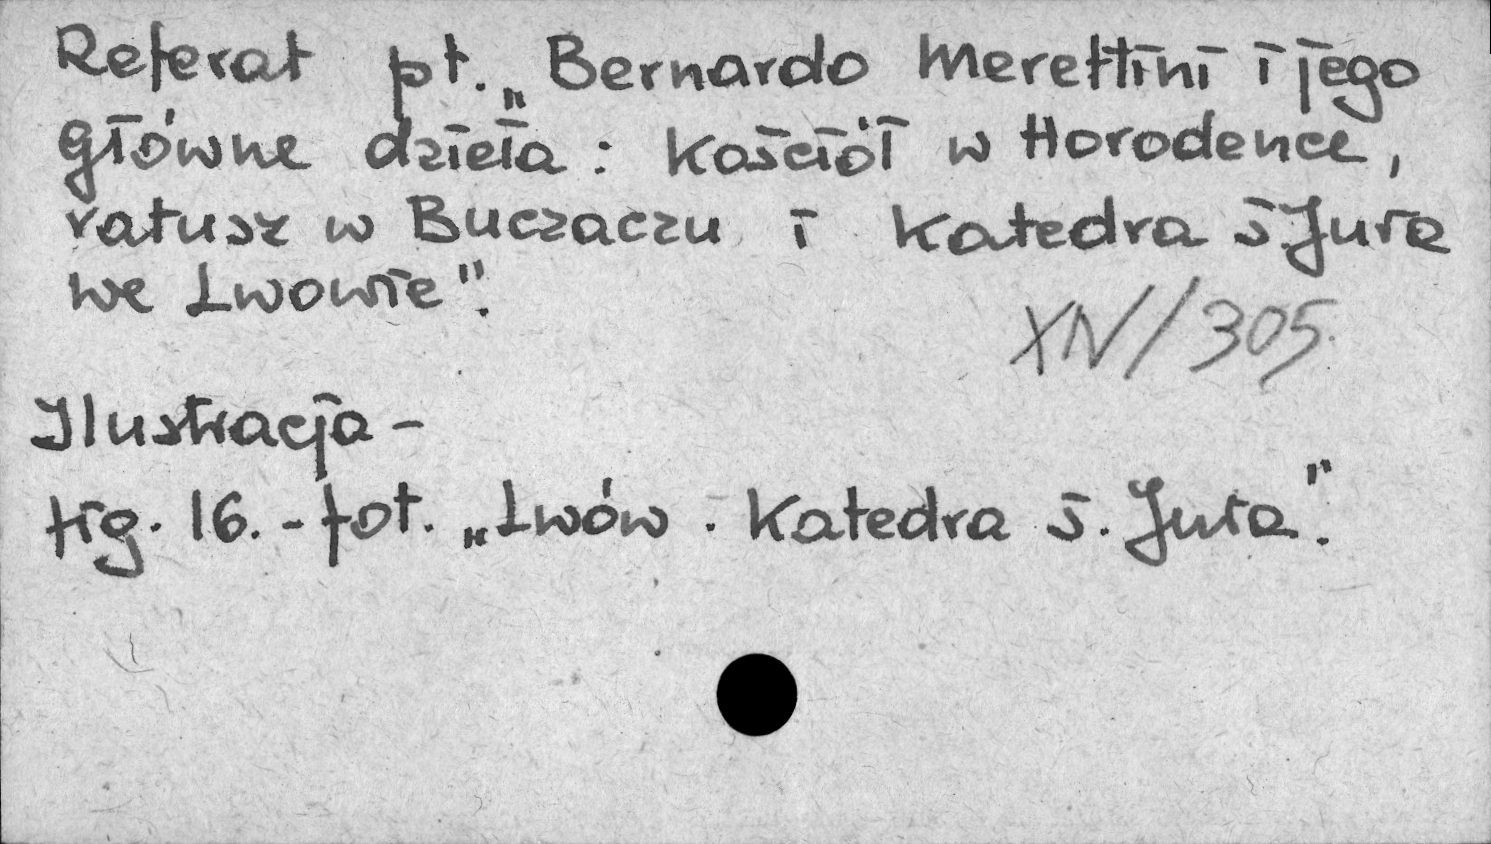 Referat pt. „Bernardo Merettini i jego
główne dzieła: Kościół w Horodence,
ratusz w Buczaczu i Katedra ś Jura
we Lwowie".
XIV/305.
Ilustracja -
fig. 16. - fot. „Lwów. Katedra ś. Jura".